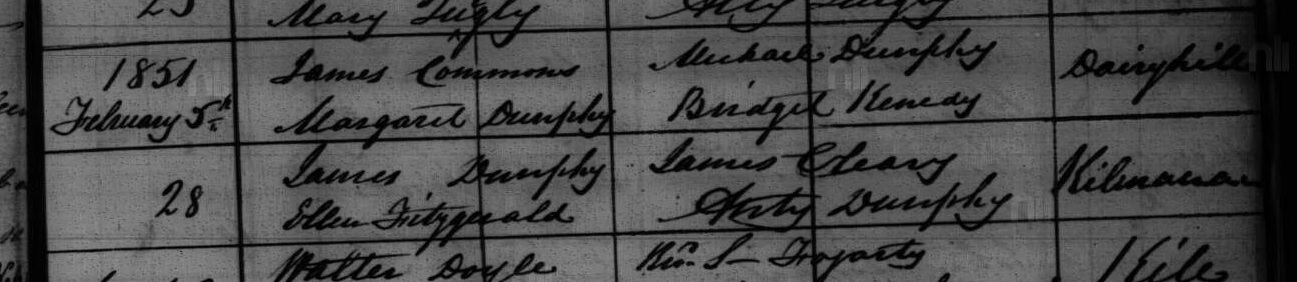 23 Mary Tugly
1851 James Commons Michael Dunphy Dairyhill
February 5th Margaret Dunphy Bridget Kenedy
James Dunphy James Cleary Kilmacar
28 Ellen Fitzgerald Dunphy
Walter Doyle Fogarty Kile